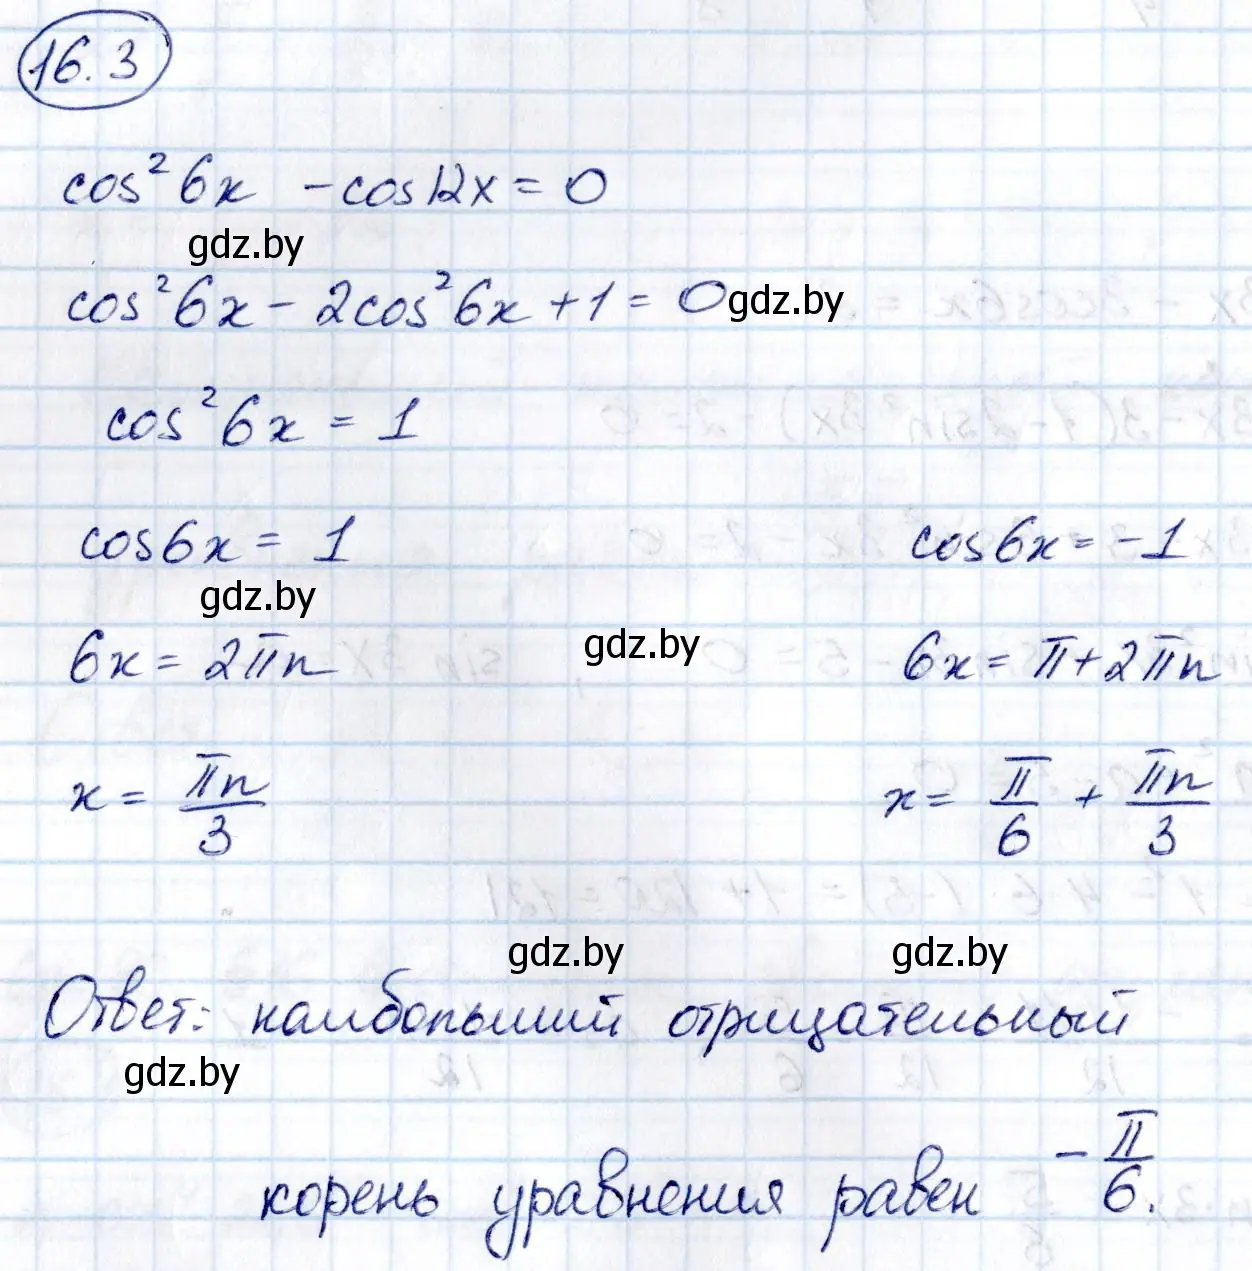 16.3
cos²6x - cos12x = 0
gdz.by
cos²6x - 2cos²6x + 1 = 0 gdz.by
cos²6x = 1
cos6x = 1 cos6x = -1
gdz.by
gdz.by
6x = 2πn 6x = π + 2πn
x = πn/3 x = π/6 + πn/3
gdz.by gdz.by
Ответ: наибольший отрицательный
gdz.by
корень уравнения равен -π/6.